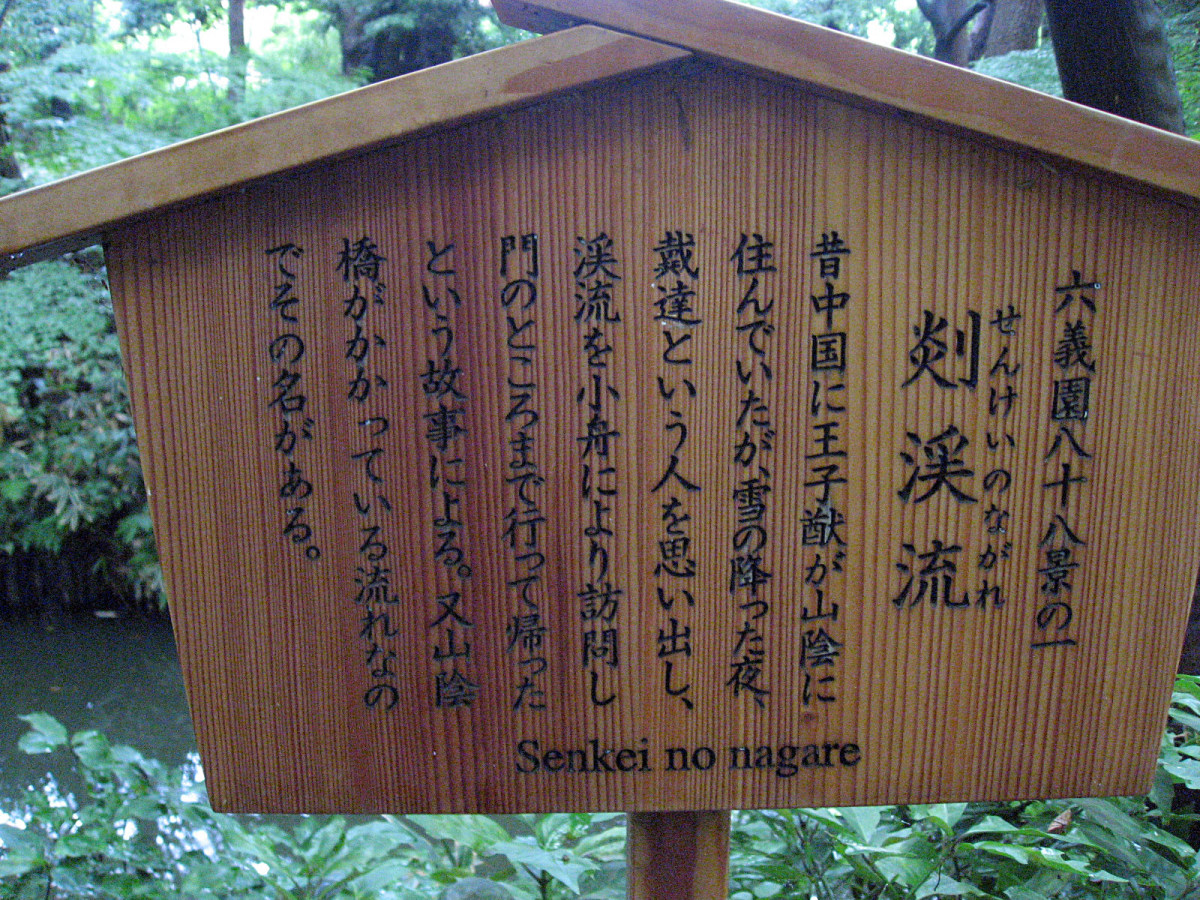 六義園八十八景の一
せんけいのながれ
剡渓流
昔中国に王子猷が山陰に
住んでいたが、雪の降った夜、
戴逹という人を思い出し、
渓流を小舟により訪問し
門のところまで行って帰った
という故事による。又山陰
橋がかかっている流れなの
でその名がある。
Senkei no nagare